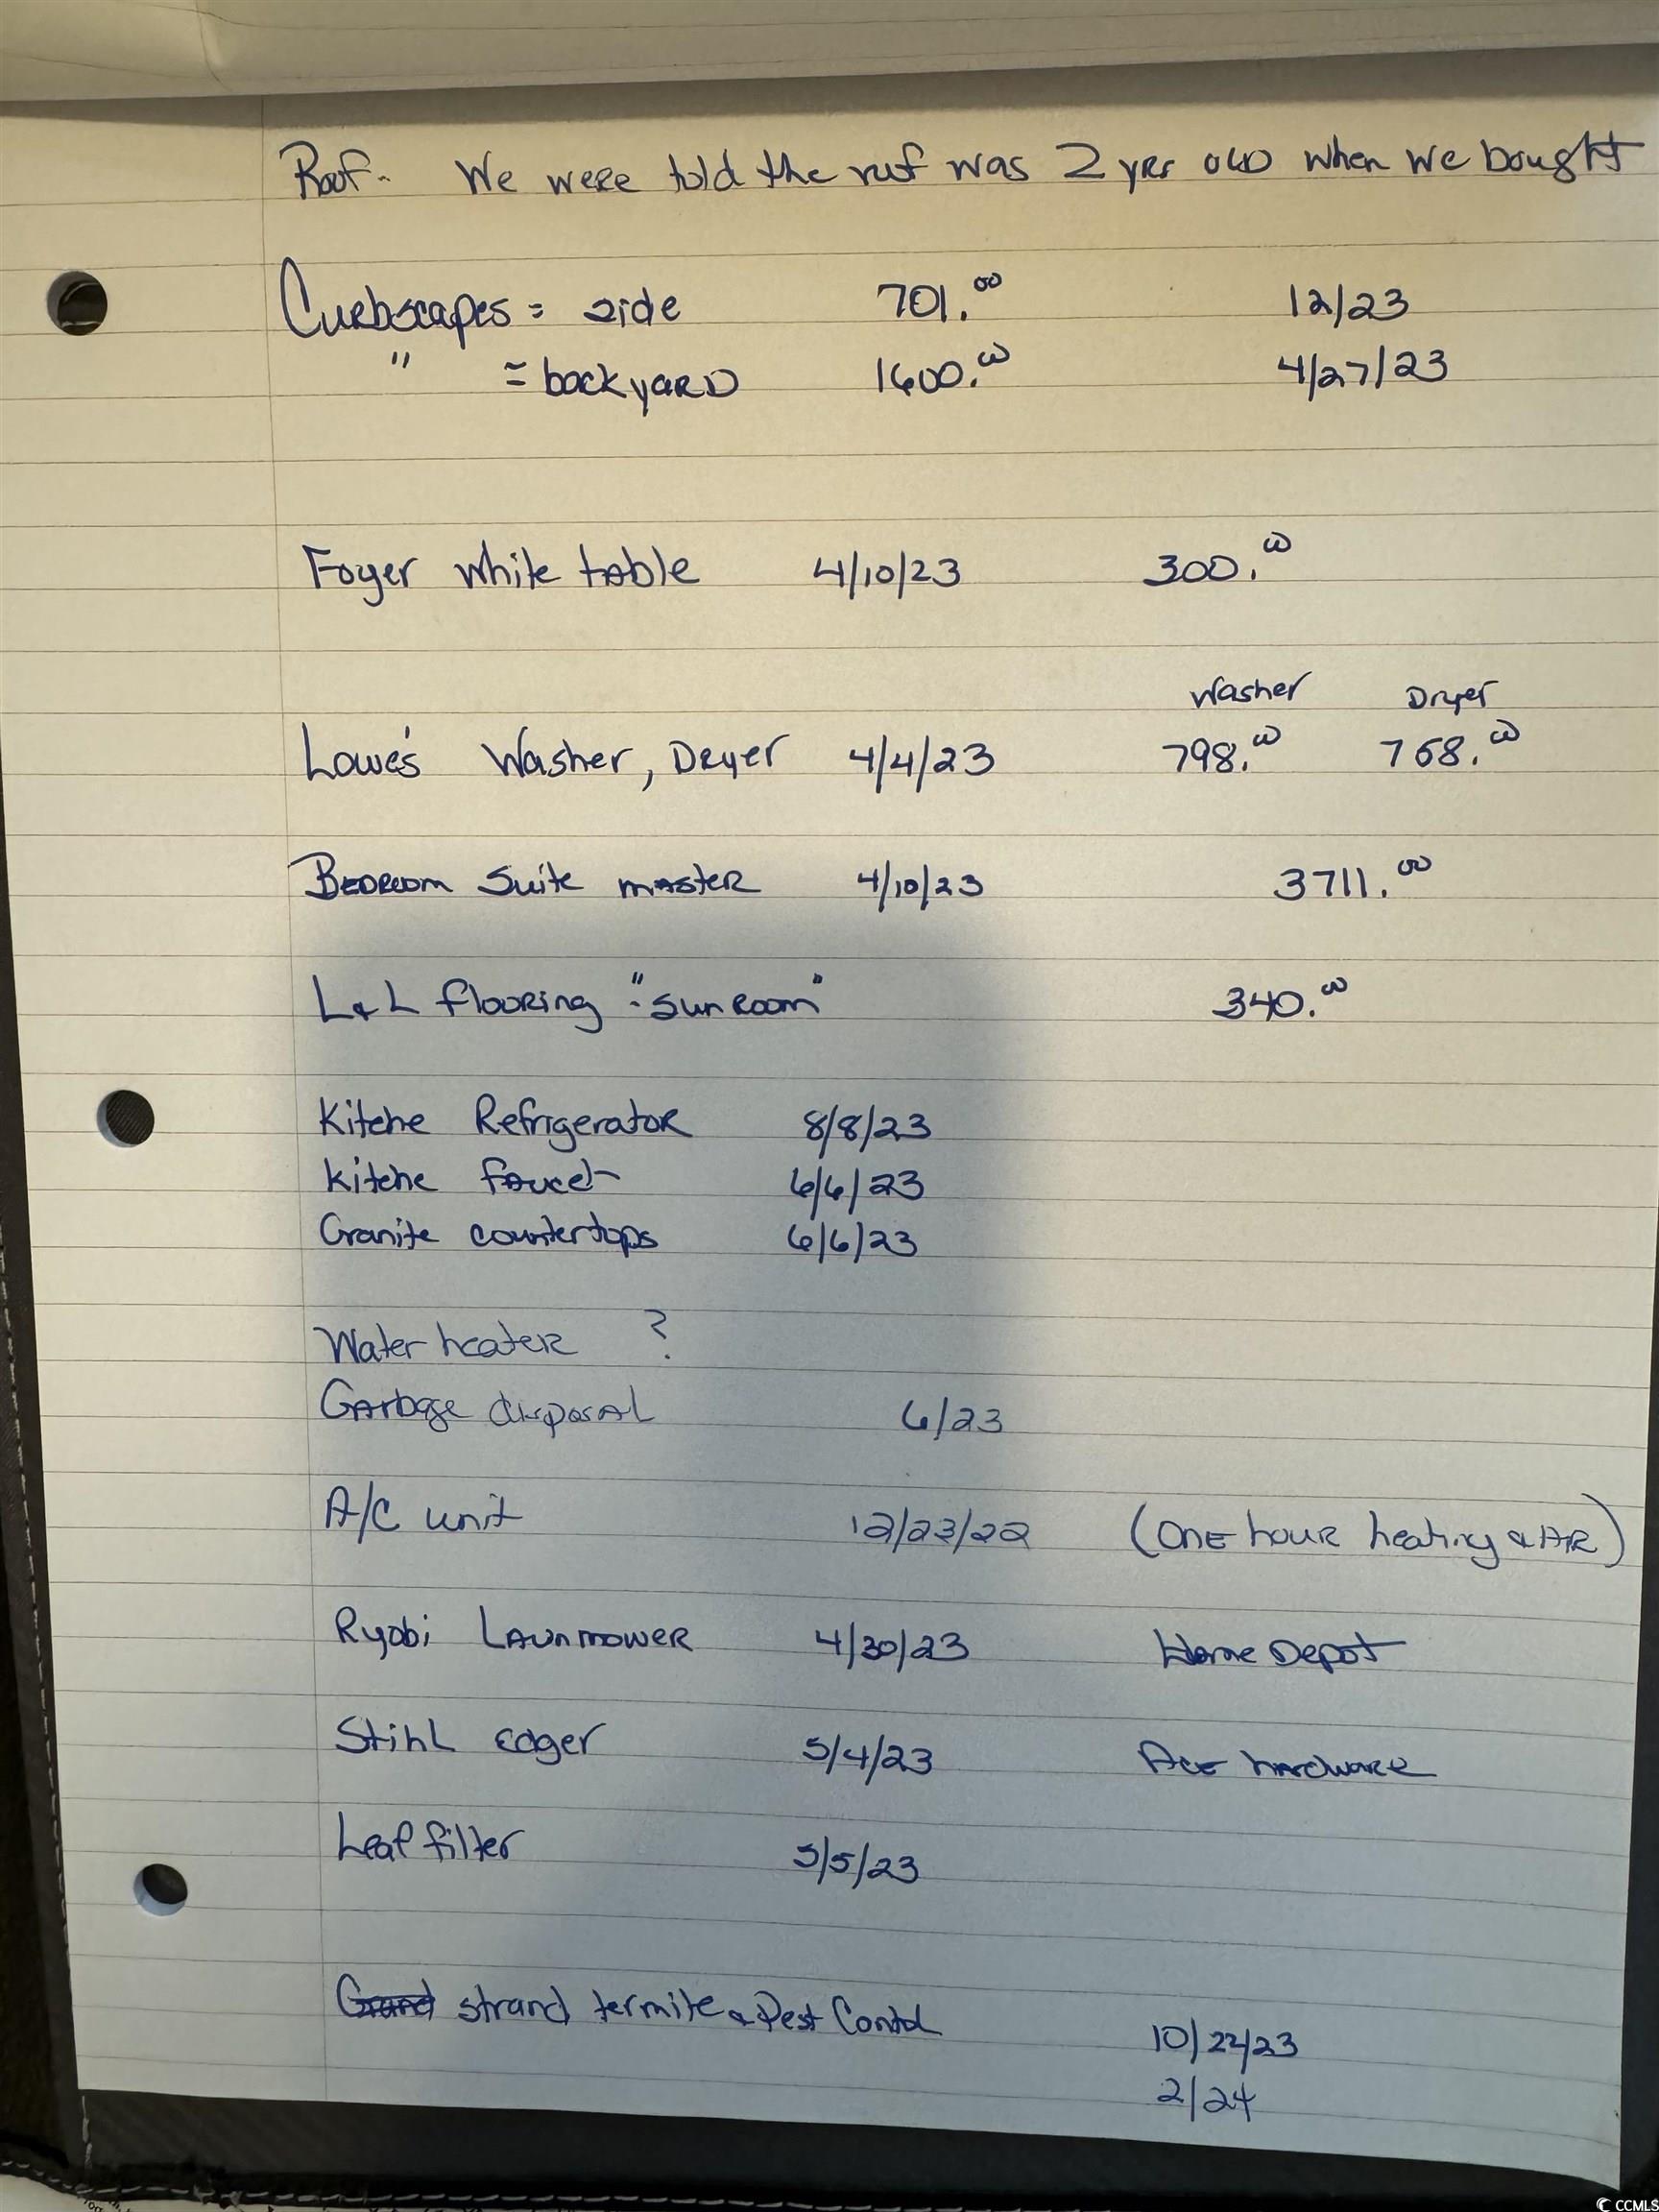 Roof - We were told the ruf was 2 yrs old when we bought
Curbscapes = side 701.00 12/23
" = backyard 1600.00 4/27/23
Foyer white table 4/10/23 300.00
Washer Dryer
Lowe's Washer, Dryer 4/4/23 798.00 768.00
Bedroom Suite master 4/10/23 3711.00
L&L flooring - "sunroom" 340.00
Kitche Refrigerator 8/8/23
Kitche faucet 6/6/23
Granite countertops 6/6/23
Water heater ?
Garbage disposal 6/23
A/C unit 12/23/22 (One hour heating & Air)
Ryobi Lawnmower 4/30/23 Home Depot
Stihl edger 5/4/23 Ace hardware
Leaf filter 5/5/23
Grand strand termite & Pest Contol 10/22/23
2/24
CCMLS